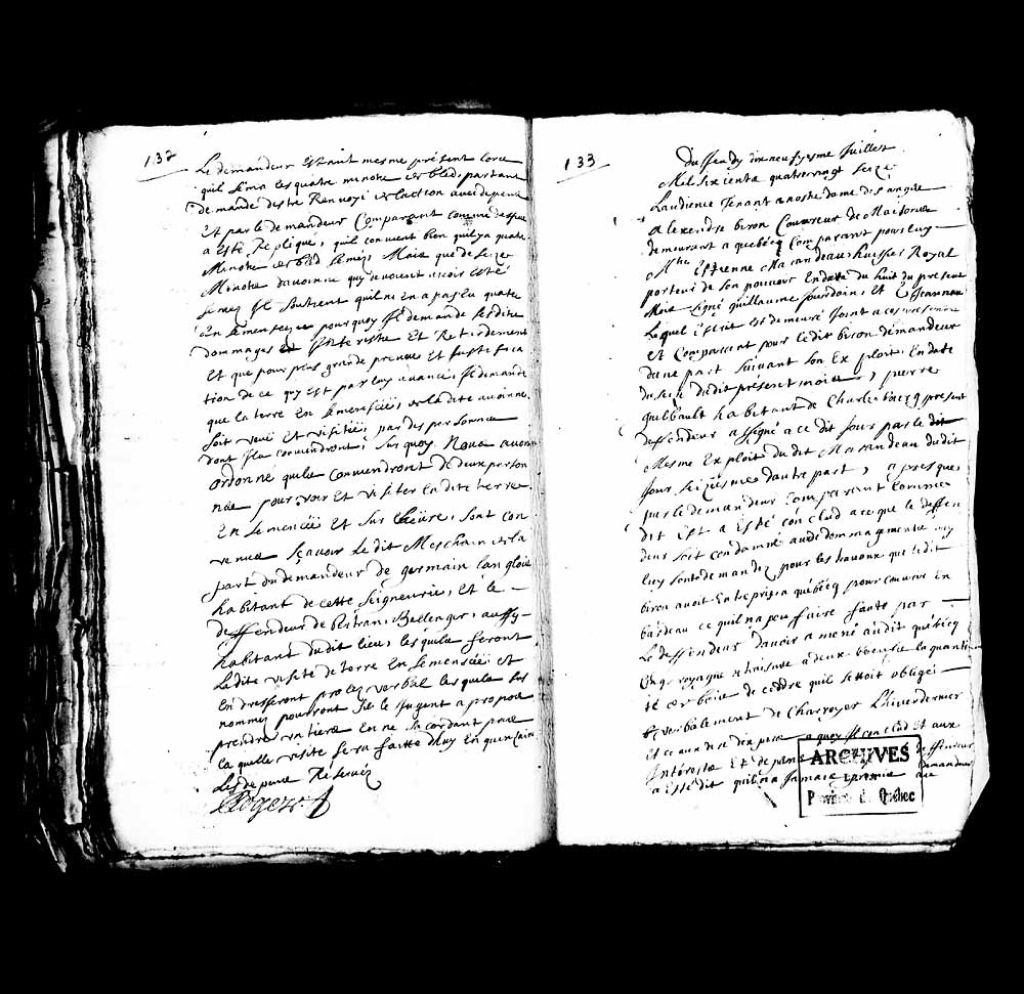 132
Le demandeur Estant mesme présent lorce
quil sema les quatre minots de bled, partant
demande destre Renvoyé de laction avec depens
Et par le demandeur Comparant comme dessus
a Esté Repliqué, quil convient bien quil ya quatre
Minots de bled semés, Mais que de seize
Minots davoinne quy devoient avoir esté
semez Il soutient quil ny en a pas Eu quatre
En semencez pourquoy Il demande sesdits
dommages et Interests Et Retardement
Et que pour plus grande preuve Et justifica
tion de ce quy Est par luy avancé, Il demande
que la terre En semensséé, de ladite avoinne
soit veüe Et visittéé, par des personnes
dont Ils conviendront, sur quoy Nous avons
ordonné quils Conviendront de deux person
nes pour voir Et visiter Ladite terre
En semencéé Et sur Lheure, sont con
venus sçavoir Le dit Meschain de la
part du demandeur de germain langlois
habitant de cette seigneurie, Et le
deffendeur de Bertran Bellenger, aussy
habitant dudit lieu, lesquels feront
Ladite visite de terre En semenséé et
En dresseront procez verbal lesquels sus
nommez pourront sils le Jugent a propos
prendre un tiers En ne sacordant pas
laquelle visite sera faitte dhuy En quinzaine
Les depens Reservez
Rogers
133
Du Jeudy dix neufyesme Juillet
Mil six cents quatre vingt seize
Laudience Tenant a nostre dame des anges
Alexendre biron Couvreur de Maisons
demeurant a quebecq Comparant pour luy
Me Estienne Marandeau huissier Royal
porteur de son pouvoir En datte du huit du present
Mois signé guillaume Jourdain, Et
Lequel Escrit Est demeuré Joint a ces presentes
Et Comparant pour ledit biron demandeur
dune part suivant son Exploit En datte
du seize dudit présent mois, pierre
quelbault habitant de Charlesbourcq present
deffendeur assigné a ce dit Jour par le dit
Mesme Exploit du dit Marandeau du dit
Jour seiziesme dautre part, apres que
par le demandeur Comparant Comme
dit Est a Esté conclud a ce que le deffen
deur soit condamné aux dommagements
luy sont demandez pour les travaux que ledit
biron avoit Entrepris a quebecq pour couvrir En
bardeau ce quil na peu faire faute par
Le deffendeur davoir amené audit quebecq
voyage a deux la quanti
té de bois de cedre quil sestoit obligé
verbalement de Charroyer Lhiver dernier
Et ce aux de dix pins a quoy Il conclud Et aux
Interests Et depens deffendeur
a Esté dit quil na Jamais promis au demandeur
ARCHIVES
Province de Québec